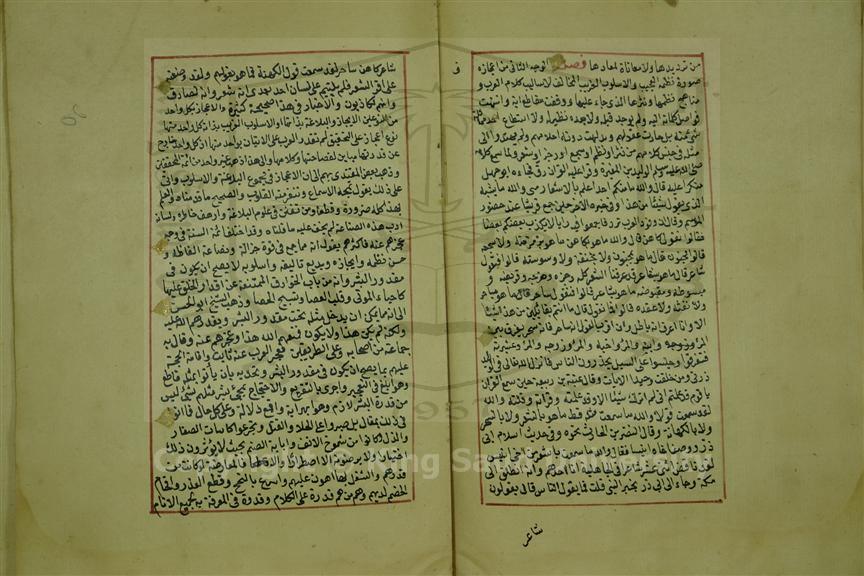 من ترديدها ولا معاناة لعادها فصل الوجه الثاني من اعجازه
صورة نظمه العجيب والاسلوب الغريب المخالف لاساليب كلام العرب و
مناهج نظمها ونثرها الذي جاء عليه ووقفت مقاطع آيه وانتهت
فواصل كلماته اليه ولم يوجد قبله ولا بعده نظير له ولا استطاع احد مماثلة
شيء منه بل حارت عقولهم وتدلهت دونه احلامهم ولم يهتدوا الى
مثله في جنس كلامهم من نثر او نظم او سجع او رجز او شعر ولما سمع كلامه
صلى الله عليه وسلم الوليد بن المغيرة وقرأ عليه القرآن رق فجاءه ابو جهل
منكرا عليه قال والله ما منكم احد اعلم بالاشعار مني والله ما يشبه
الذي يقول شيئا من هذا وفي خبره الآخر حين جمع قريشا عند حضور
الموسم وقال ان وفود العرب ترد فاجمعوا فيه رأيا لا يكذب بعضكم بعضا
فقالوا نقول كاهن قال والله ما هو بكاهن ما هو بزمزمته ولا سجعه
قالوا مجنون قال ما هو بمجنون ولا بخنقه ولا وسوسته قالوا فنقول
شاعر قال ما هو بشاعر قد عرفنا الشعر كله رجزه وهزجه وقريضه و
مبسوطه ومقبوضه ما هو بشاعر قالوا فنقول ساحر قال ما هو بساحر
ولا نفثه ولا عقده قالوا فما نقول قال ما انتم بقائلين من هذا شيئا
الا وانا اعرف انه باطل وان اقرب القول انه ساحر فانه سحر يفرق بين
المرء وزوجه والمرء واخيه والمرء وزوجه والمرء وعشيرته
فتفرقوا وجلسوا على السبل يحذرون الناس فانزل الله تعالى في الوليد
ذرني ومن خلقت وحيدا الآيات وقال عتبة بن ربيعة حين سمع القرآن
يا قوم قد علمتم اني لم اترك شيئا الا وقد علمته وقرأته وقلته والله
لقد سمعت قولا والله ما سمعت مثله قط ما هو بالشعر ولا بالسحر
ولا بالكهانة وقال النضر بن الحارث نحوه وفي حديث اسلام ابي
ذر ووصف اخاه انيسا فقال والله ما سمعت باشعر من اخي انيس
لقد ناقض اثني عشر شاعرا في الجاهلية انا احدهم وانه انطلق الى
مكة وجاء الى ابي ذر بخبر النبي قلت فما يقول الناس قال يقولون
شاعر
شاعر كاهن ساحر لقد سمعت قول الكهنة فما هو بقولهم ولقد وضعته
على اقراء الشعر فلم يلتئم على لسان احد بعدي انه شعر وانه لصادق
وانهم لكاذبون والاخبار في هذا صحيحة كثيرة والاعجاز بكل واحد
من النوعين الايجاز والبلاغة بذاتها والاسلوب الغريب بذاته كل واحد منهما
نوع اعجاز على التحقيق لم تقدر العرب على الاتيان بواحد منهما اذ كل واحد خارج
عن قدرتها مباين لفصاحتها وكلامها والى هذا ذهب غير واحد من ائمة المحققين
وذهب بعض المقتدى بهم الى ان الاعجاز في مجموع البلاغة والاسلوب واتى
على ذلك بقول تمجه الاسماع وتنفر منه القلوب والصحيح ما قدمناه والعلم
بهذا كله ضرورة وقطعا ومن تفنن في علوم البلاغة وارهف خاطره ولسانه
ادب هذه الصناعة لم يخف عليه ما قلناه وقد اختلف ائمة السنة في وجه
عجزهم عنه فاكثرهم يقول انه ما جمع في قوة جزالة ونصاعة الفاظه و
حسن نظمه وايجازه وبديع تاليفه واسلوبه لا يصح ان يكون في
مقدور البشر وانه من باب الخوارق الممتنعة عن اقدار الخلق عليها
كاحياء الموتى وقلب العصا وتسبيح الحصا وذهب الشيخ ابو الحسن
الى انه مما يمكن ان يدخل مثله تحت مقدور البشر ويقدرهم الله عليه
ولكنه لم يكن هذا ولا يكون فمنعهم الله هذا وعجزهم عنه وقال به
جماعة من اصحابه وعلى الطريقين فعجز العرب عنه ثابت واقامة الحجة
عليهم بما يصح ان يكون في مقدور البشر وتحديهم بان يأتوا بمثله قاطع
وهو ابلغ في التعجيز واحرى بالتقريع والاحتجاج بمجيء بشر مثلهم بشيء ليس
من قدرة البشر لازم وهو ابهر آية واقمع دلالة وعلى كل حال فما اتوا
في ذلك بمقال بل صبروا على الجلاء والقتل وتجرعوا كاسات الصغار
والذل وكانوا من شموخ الانف واباءة الضيم بحيث لا يؤثرون ذلك
اختيارا ولا يرضونه الا اضطرارا والا فالمعارضة لو كانت من
قدرهم والشغل بها اهون عليهم واسرع بالنجح وقطع العذر وافحام
الخصم لديهم وهم من هم قدرة على الكلام وقدوة في المعرفة به لجميع الانام